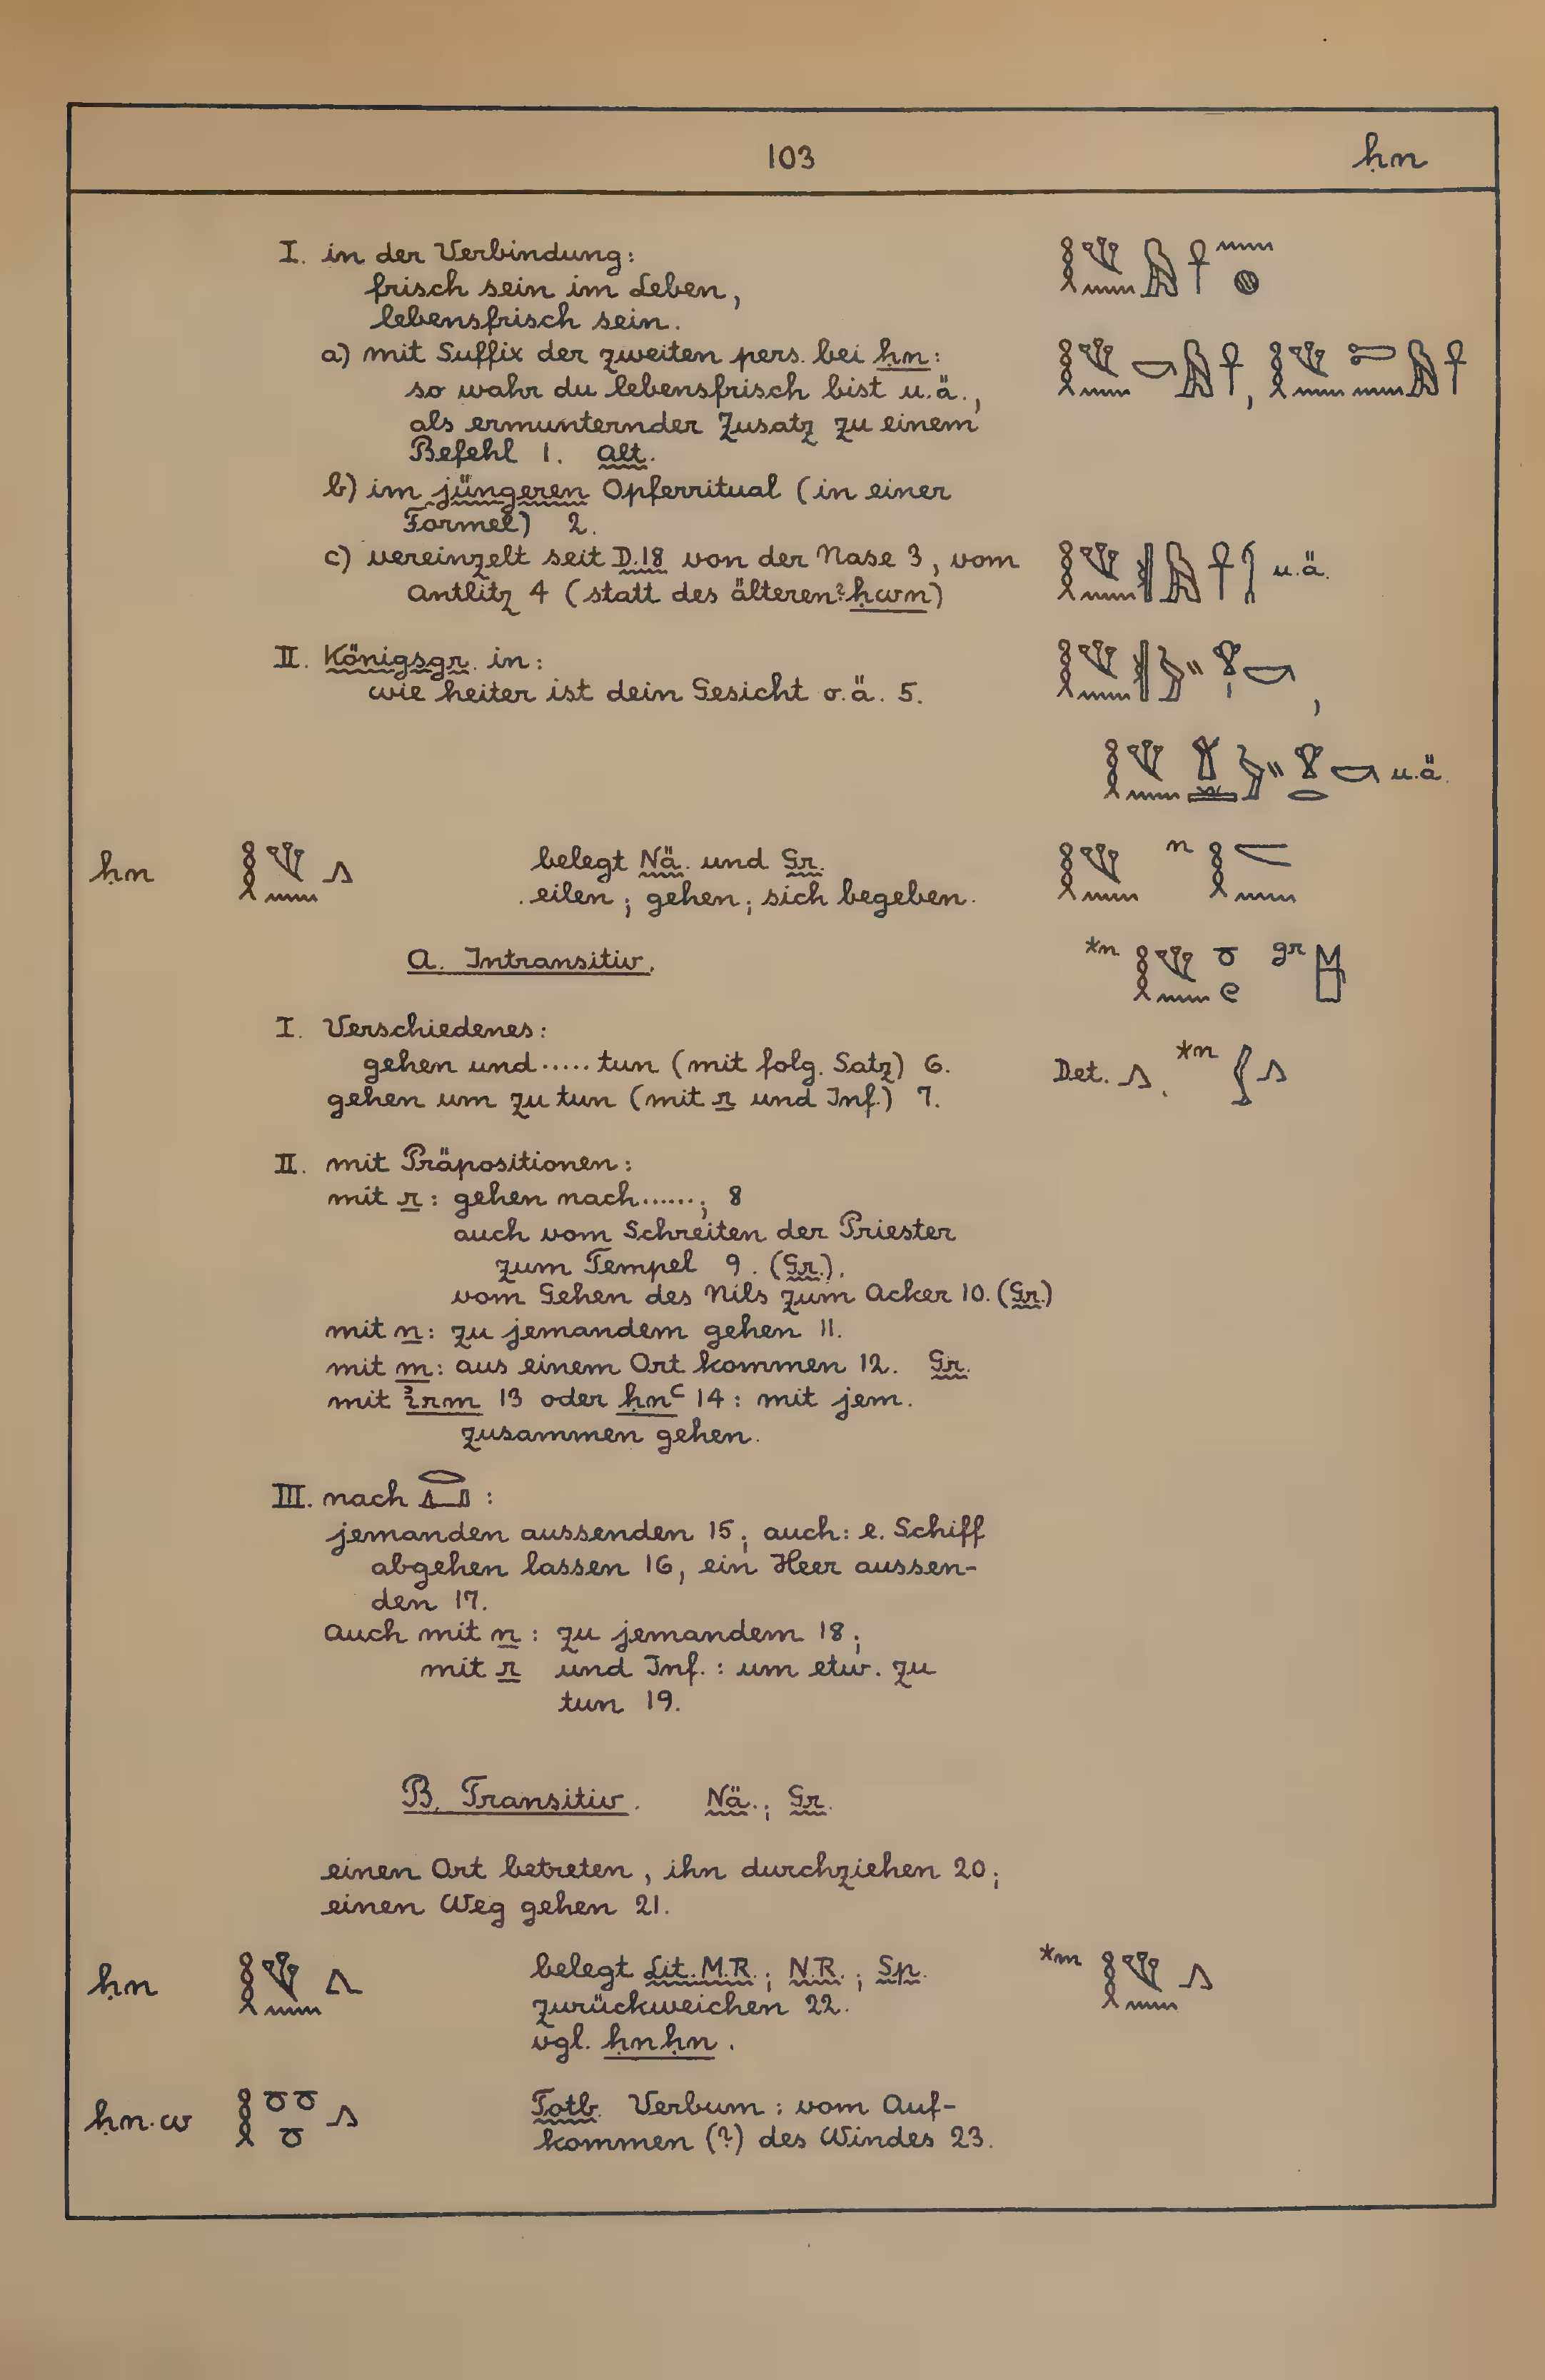 103 ḥn
I. in der Verbindung:
frisch sein im Leben,
lebensfrisch sein.
a) mit Suffix der zweiten pers. bei ḥn:
so wahr du lebensfrisch bist u.ä.,
als ermunternder Zusatz zu einem
Befehl 1. Alt.
b) im jüngeren Opferritual (in einer
Formel) 2.
c) vereinzelt seit D.18 von der Nase 3, vom
Antlitz 4 (statt des älteren ḥwn) u.ä.
II. Königsgr. in:
wie heiter ist dein Gesicht o.ä. 5.
u.ä.
ḥn belegt Nä. und Gr. n
eilen; gehen; sich begeben.
A. Intransitiv. *n gr
I. Verschiedenes:
gehen und ..... tun (mit folg. Satz) 6. Det. *n
gehen um zu tun (mit r und Inf.) 7.
II. mit Präpositionen:
mit r: gehen nach ......; 8
auch vom Schreiten der Priester
zum Tempel 9. (Gr.).
vom Gehen des Nils zum Acker 10. (Gr.)
mit n: zu jemandem gehen 11.
mit m: aus einem Ort kommen 12. Gr.
mit ỉrm 13 oder ḥnꜥ 14: mit jem.
zusammen gehen.
III. nach 𓂋𓂞:
jemanden aussenden 15; auch: e. Schiff
abgehen lassen 16, ein Heer aussen-
den 17.
Auch mit n: zu jemandem 18;
mit r und Inf.: um etw. zu
tun 19.
B. Transitiv. Nä.; Gr.
einen Ort betreten, ihn durchziehen 20;
einen Weg gehen 21.
ḥn belegt Lit. M.R.; N.R.; Sp. *m
zurückweichen 22.
vgl. ḥnḥn.
ḥn.w Totb. Verbum: vom Auf-
kommen (?) des Windes 23.